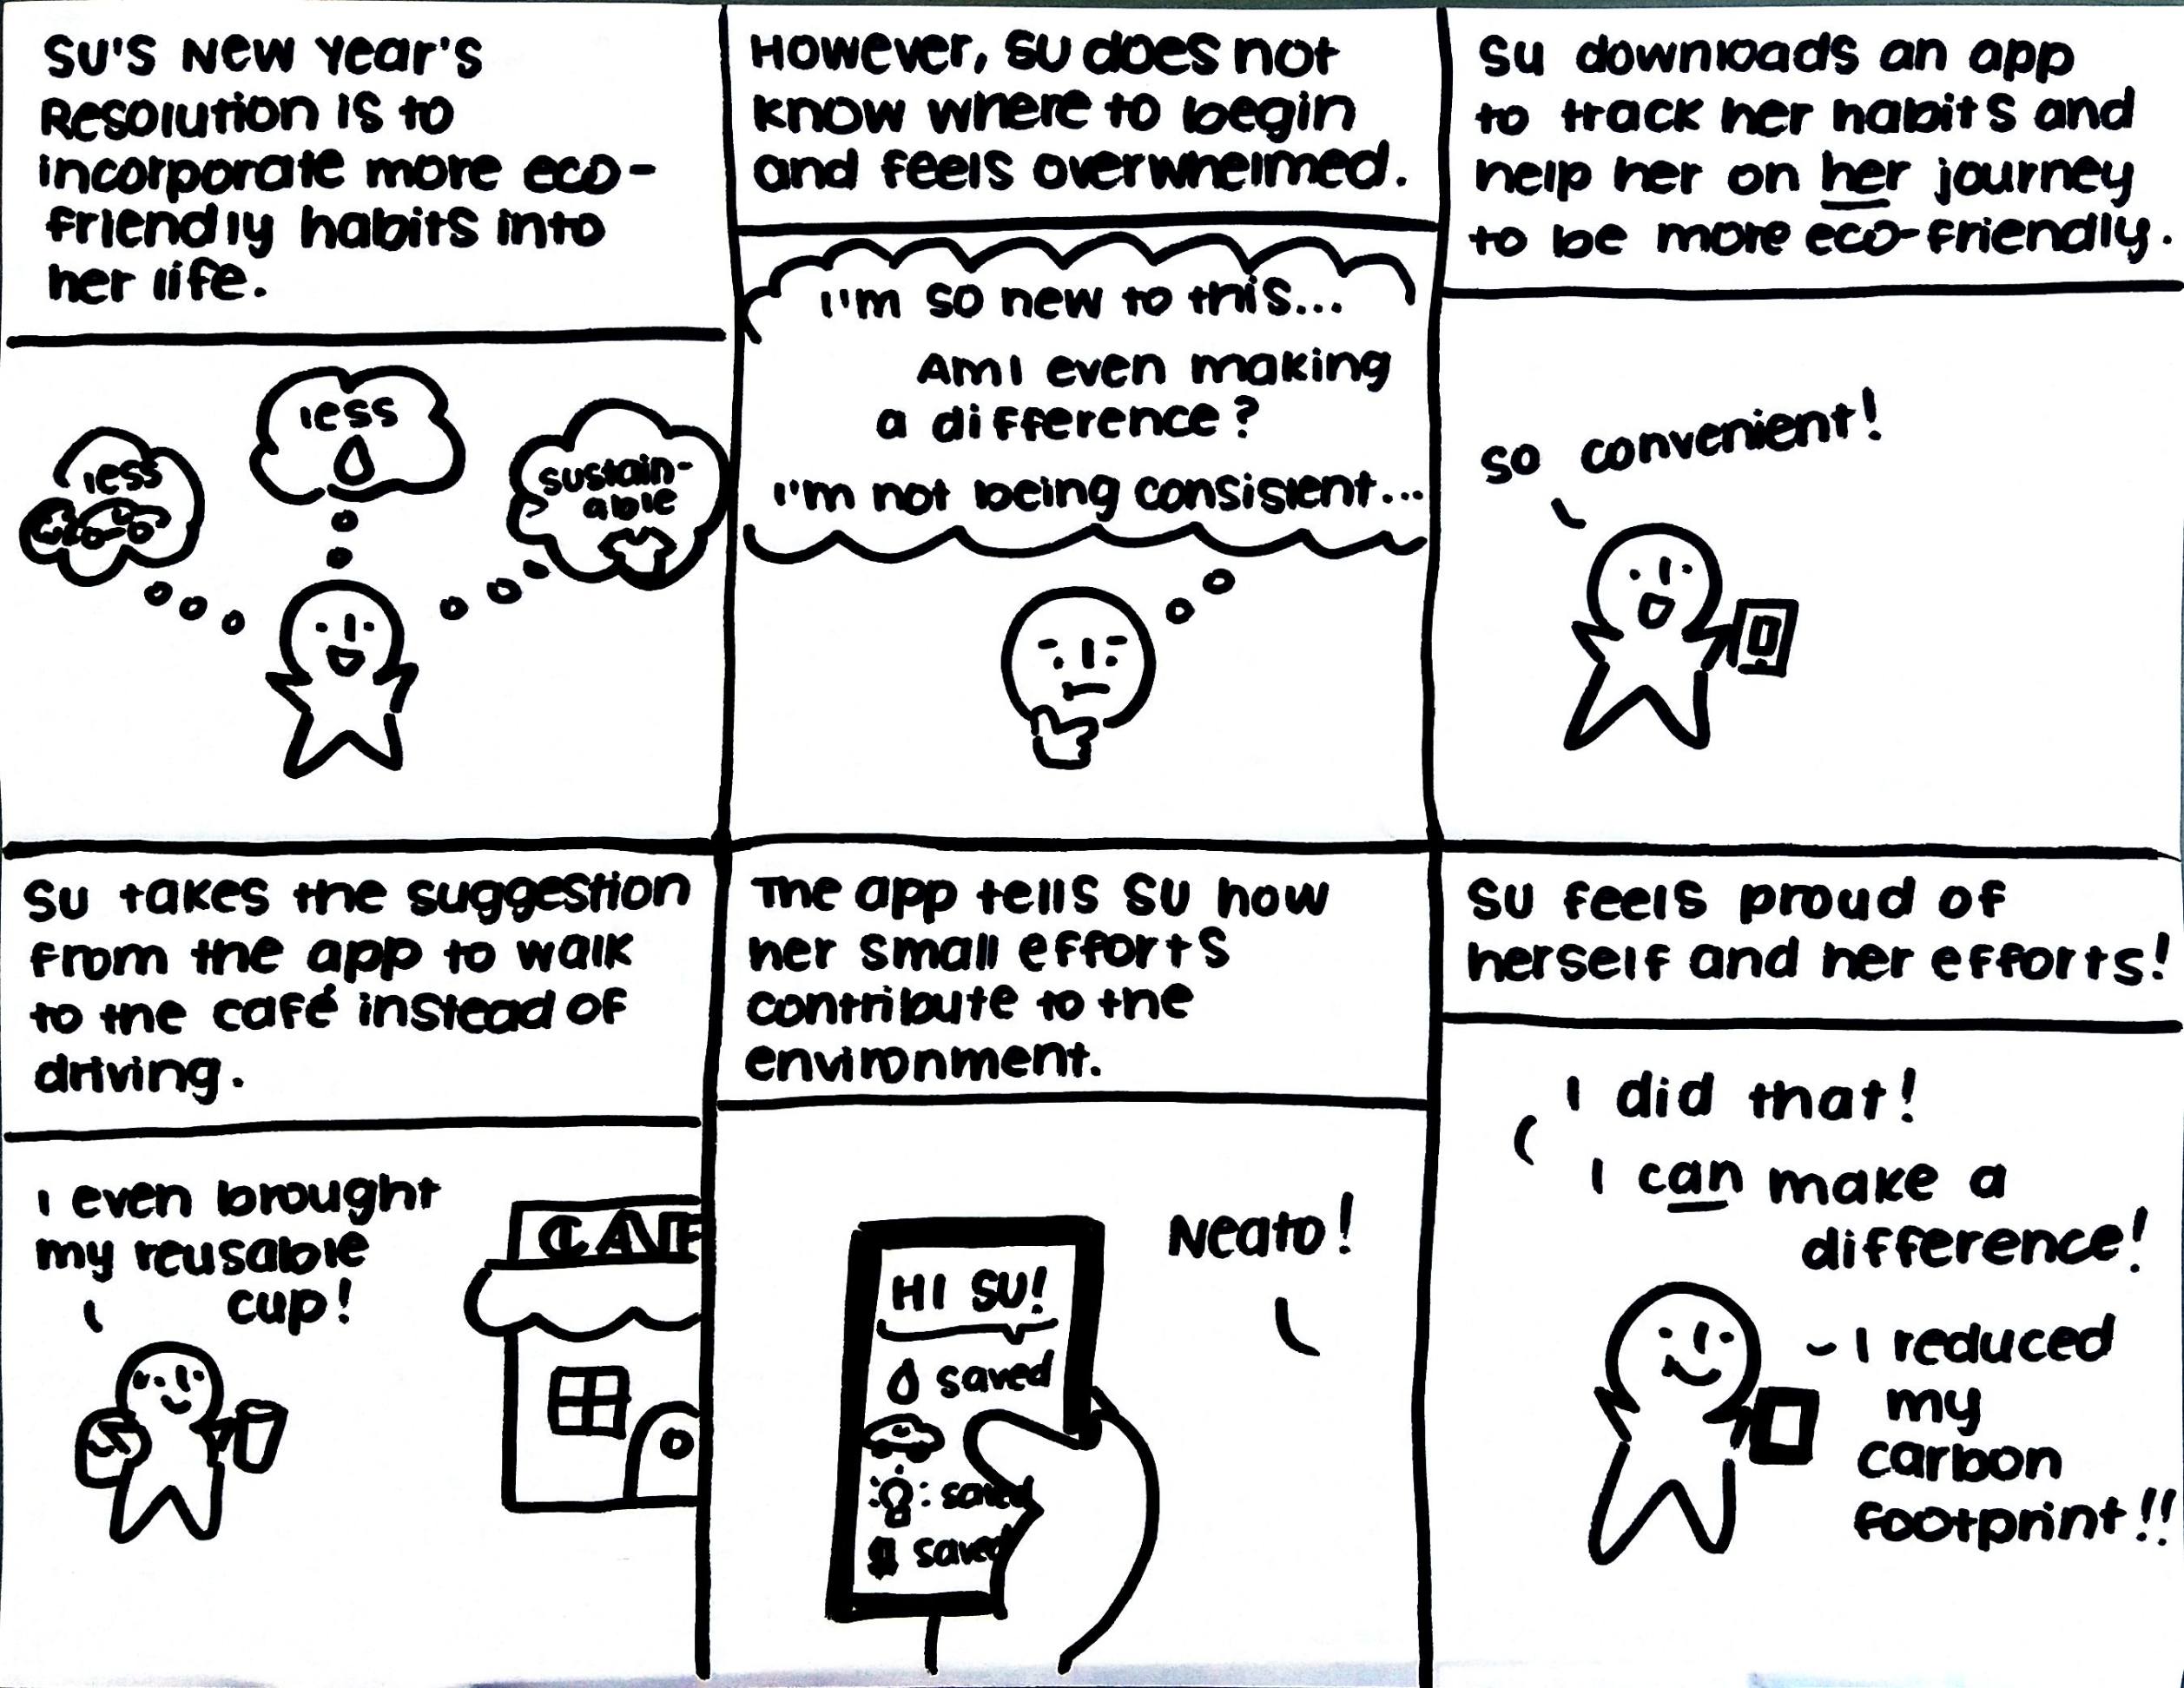 SU'S New Year's
Resolution is to
incorporate more eco-
friendly habits into
her life.
less
less
sustain-
able
However, SU does not
know where to begin
and feels overwhelmed.
I'm so new to this...
Am I even making
a difference?
I'm not being consistent...
Su downloads an app
to track her habits and
help her on her journey
to be more eco-friendly.
so convenient!
SU takes the suggestion
from the app to walk
to the café instead of
driving.
I even brought
my reusable
cup!
CAF
The app tells SU how
her small efforts
contribute to the
environment.
Neato!
HI SU!
saved
saved
saved
SU feels proud of
herself and her efforts!
I did that!
I can make a
difference!
I reduced
my
carbon
footprint!!